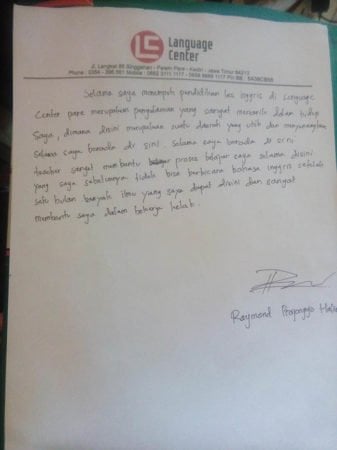 Language
Center
Jl. Langkat 88 Singgahan - Pelem Pare - Kediri , Jawa Timur 64213
Selama saya menempuh pendidikan les inggris di Language
Center pare merupakan pengalaman yang sangat menarik dalam hidup
saya, dimana disini merupakan suatu daerah yang unik dan menyenangkan
selama saya berada di sini. Selama saya berada di sini
sangat membantu proses belajar saya selama disini
yang saya sebelumnya tidak bisa berbicara bahasa inggris setelah
satu bulan banyak ilmu yang saya dapat disini dan sangat
membantu saya dalam bekerja kelak.
Raymond